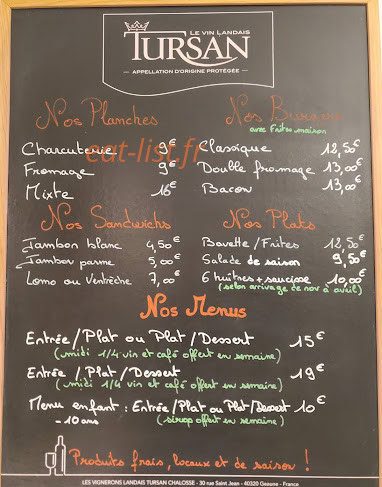 LE VIN LANDAIS
TURSAN
APPELLATION D'ORIGINE PROTÉGÉE
Nos Planches
Charcuterie 9€
Fromage 9€
Mixte 16€
Nos Burgers
avec frites maison
Classique 12,50€
Double fromage 13,00€
Bacon 13,00€
eat-list.fr
Nos Sandwichs
Jambon blanc 4,50€
Jambon parme 5,00€
Lomo ou Ventrèche 7,00€
Nos Plats
Bavette/Frites 12,50€
Salade de saison 9,50€
6 huîtres + saucisse 10,00€
(selon arrivage de nov à avril)
Nos Menus
Entrée/Plat ou Plat/Dessert 15€
(midi 1/4 vin et café offert en semaine)
Entrée/Plat/Dessert 19€
(midi 1/4 vin et café offert en semaine)
Menu enfant : Entrée/Plat ou Plat/Dessert 10€
-10 ans (sirop offert en semaine)
Produits frais, locaux et de saison !
LES VIGNERONS LANDAIS TURSAN CHALOSSE - 30 rue Saint Jean - 40320 Geaune - France